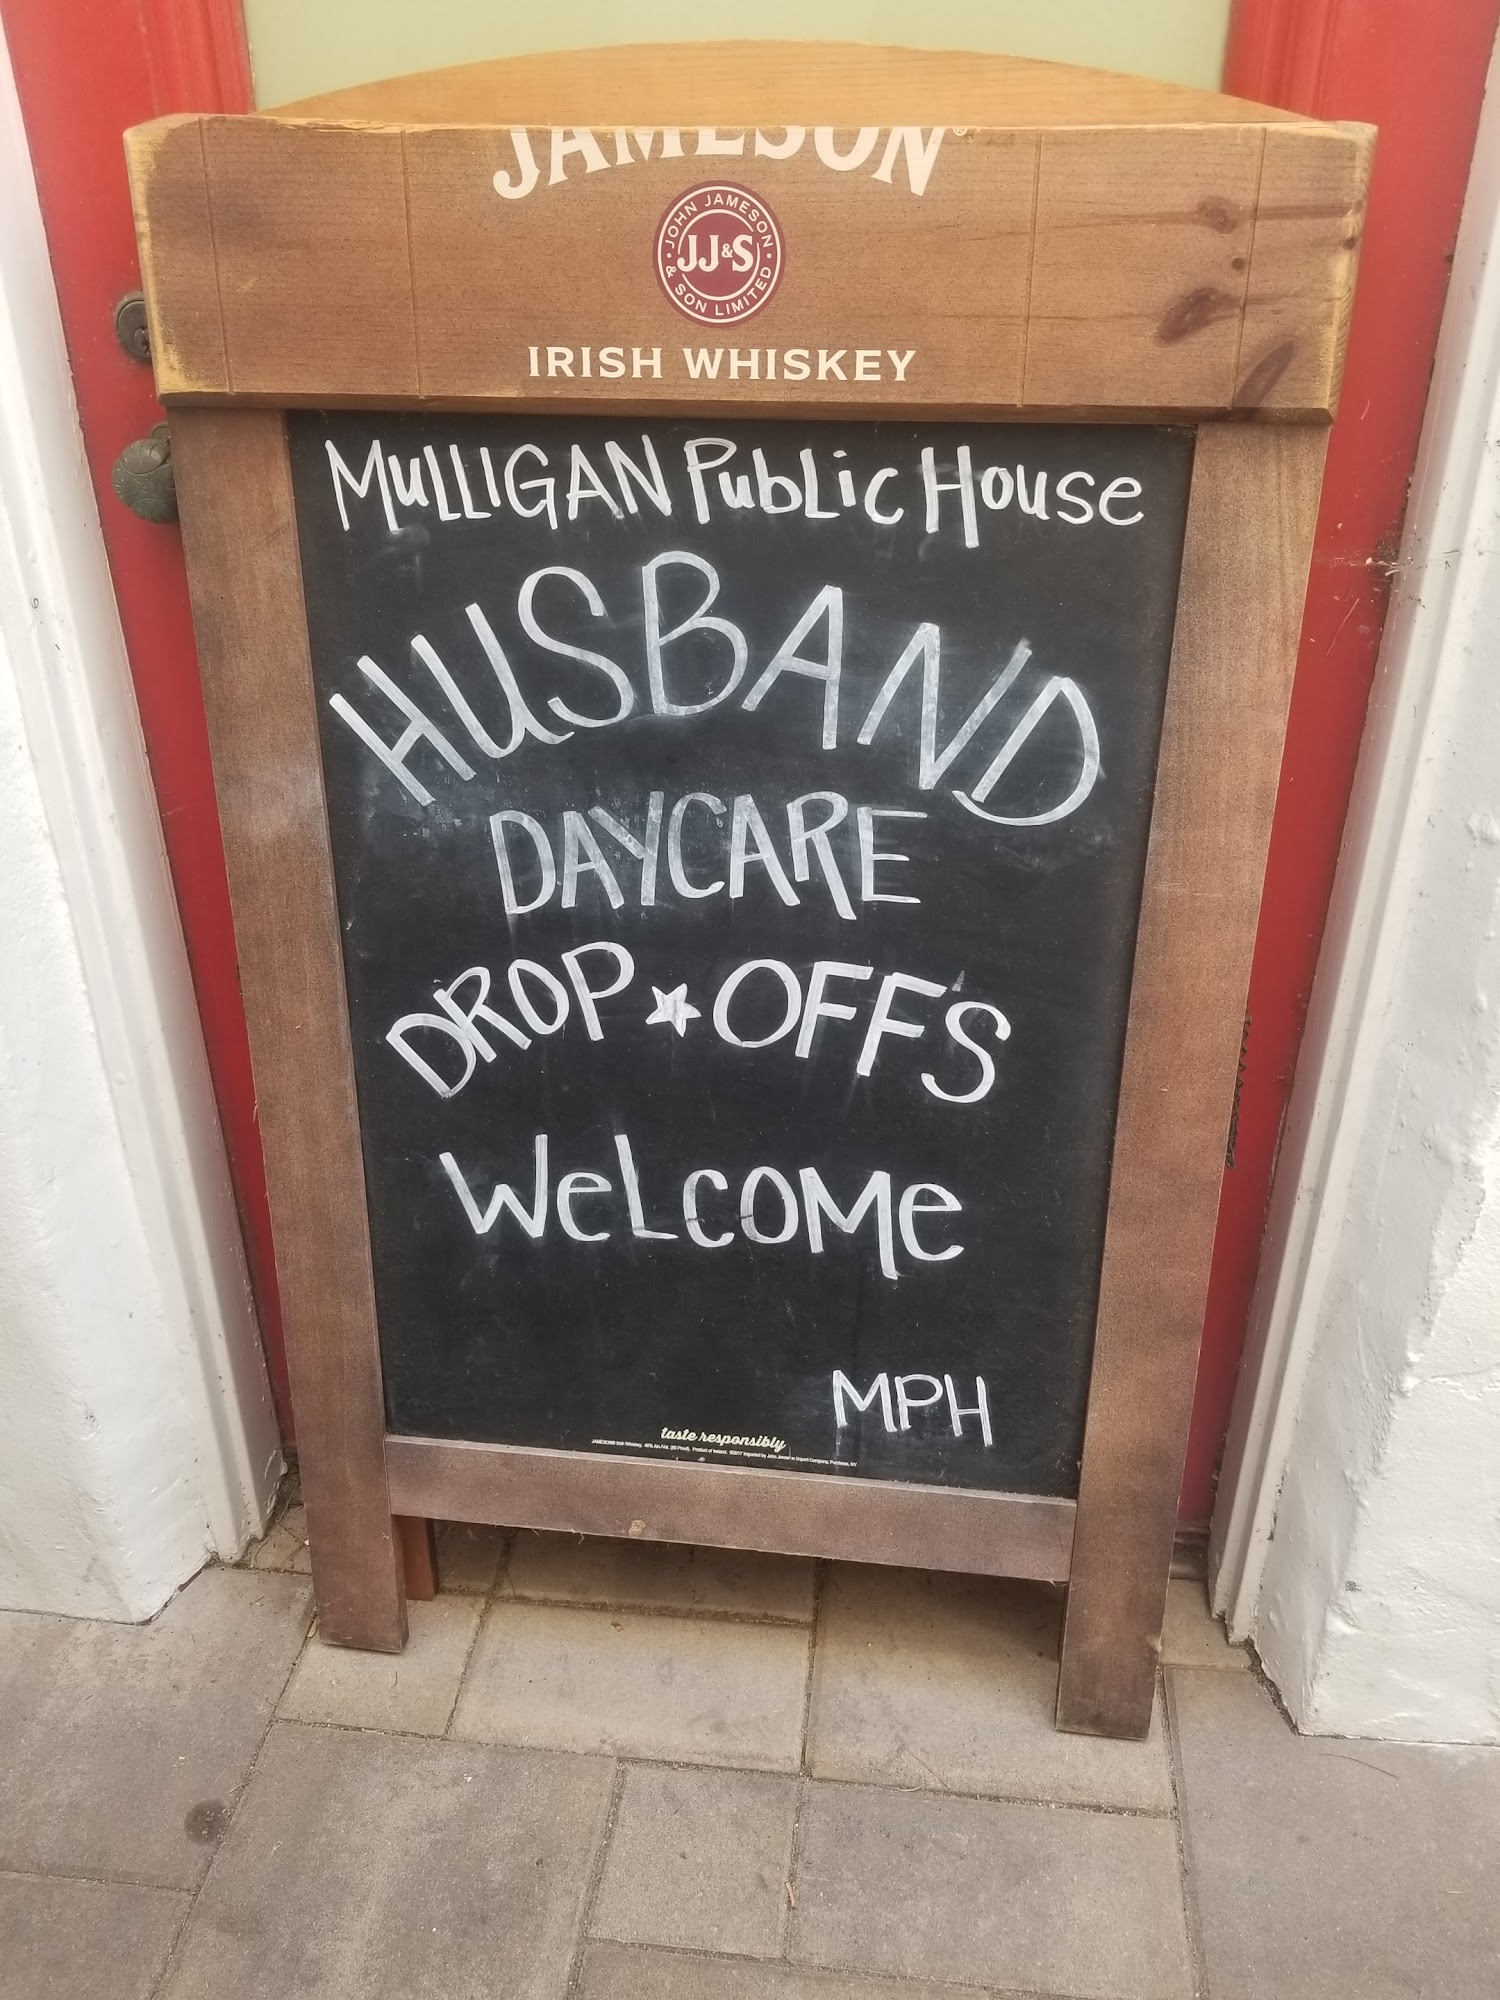 JAMESON®
JOHN JAMESON
JJ&S
& SON LIMITED
IRISH WHISKEY
MULLIGAN PubLic House
HUSBAND
DAYCARE
DROP★OFF'S
WeLcoMe
MPH
taste responsibly